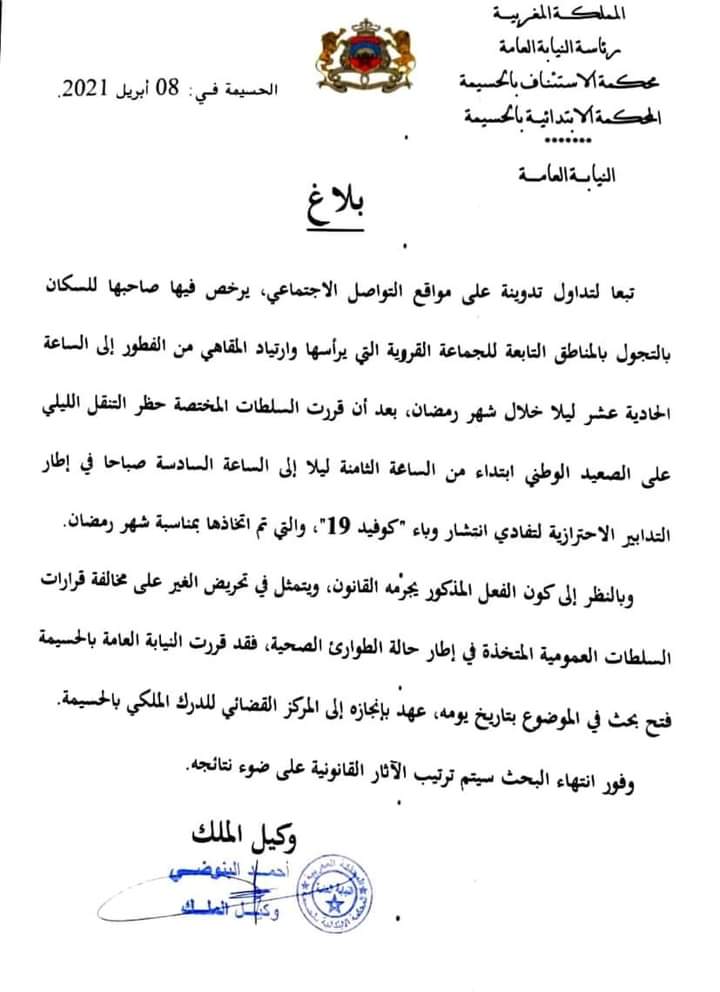 المملكة المغربية
رئاسة النيابة العامة
محكمة الاستئناف بالحسيمة
المحكمة الابتدائية بالحسيمة
*******
النيابة العامة
الحسيمة في: 08 أبريل 2021.
بلاغ
تبعا لتداول تدوينة على مواقع التواصل الاجتماعي، يرخص فيها صاحبها للسكان
بالتجول بالمناطق التابعة للجماعة القروية التي يرأسها وارتياد المقاهي من الفطور إلى الساعة
الحادية عشر ليلا خلال شهر رمضان، بعد أن قررت السلطات المختصة حظر التنقل الليلي
على الصعيد الوطني ابتداء من الساعة الثامنة ليلا إلى الساعة السادسة صباحا في إطار
التدابير الاحترازية لتفادي انتشار وباء "كوفيد 19"، والتي تم اتخاذها بمناسبة شهر رمضان.
وبالنظر إلى كون الفعل المذكور يجرمه القانون، ويتمثل في تحريض الغير على مخالفة قرارات
السلطات العمومية المتخذة في إطار حالة الطوارئ الصحية، فقد قررت النيابة العامة بالحسيمة
فتح بحث في الموضوع بتاريخ يومه، عهد بإنجازه إلى المركز القضائي للدرك الملكي بالحسيمة.
وفور انتهاء البحث سيتم ترتيب الآثار القانونية على ضوء نتائجه.
وكيل الملك
أحمد البنوضي
وكيل الملك